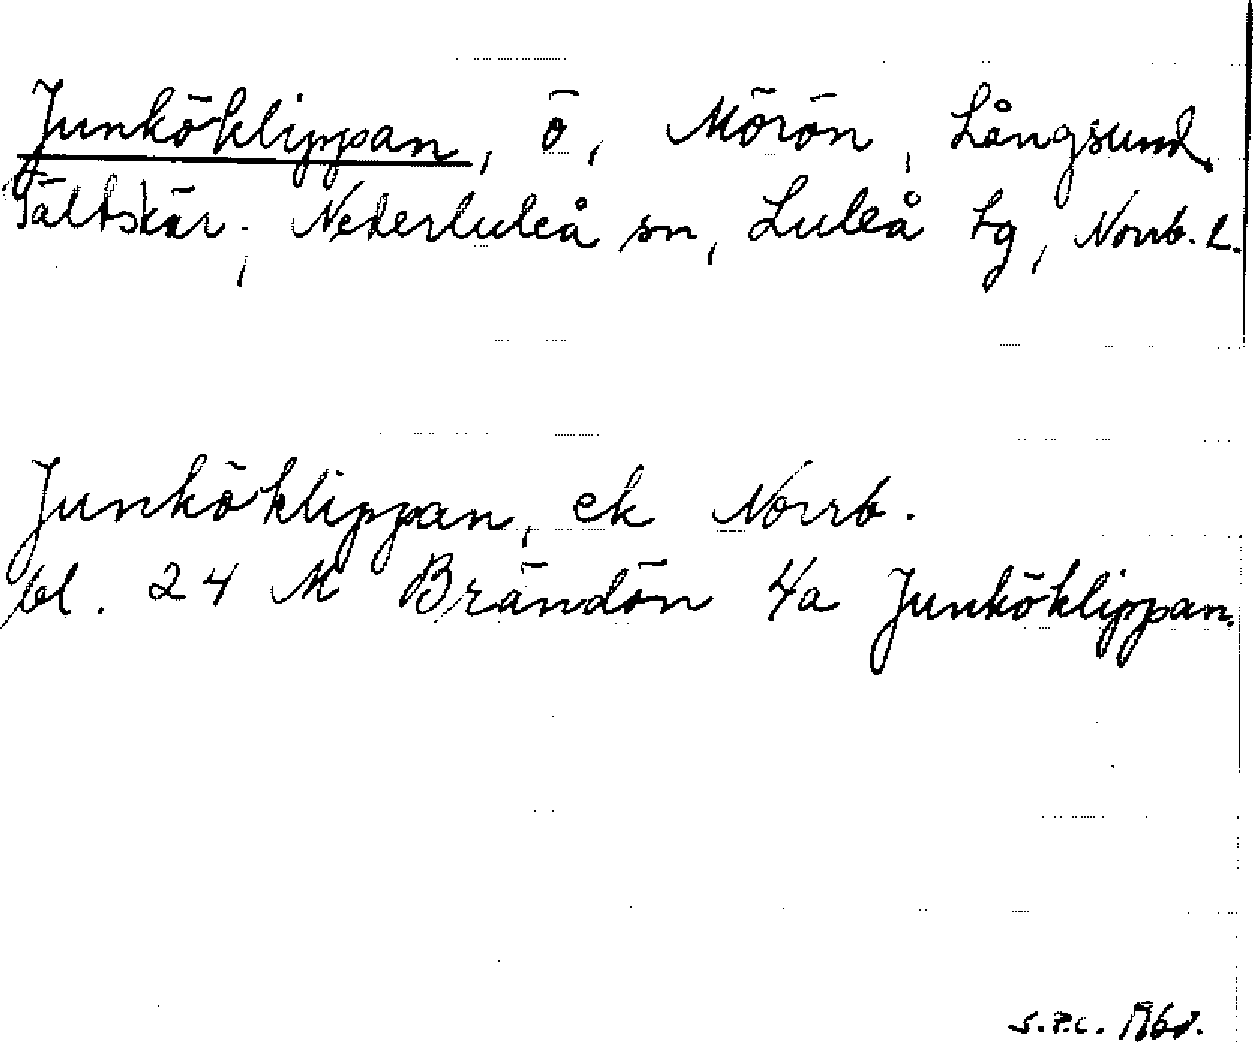 Junköklippan, ö, Mörön, Långsund,
Tältskär, Nederluleå sn, Luleå tg, Norrb. L.
Junköklippan, ek Norrb.
bl. 24 M Brändön 4a Junköklippan.
S.P.C. 1968.